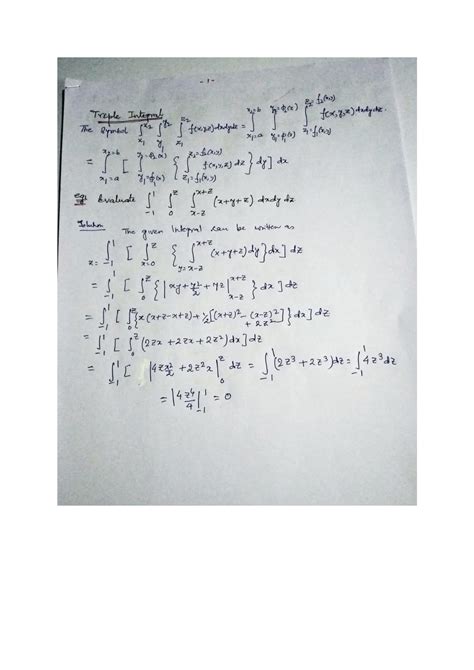 -1-
Treple Integral:
The Symbol ∫_{x1}^{x2} ∫_{y1}^{y2} ∫_{z1}^{z2} f(x,y,z) dxdydz = ∫_{x1=a}^{x2=b} ∫_{y1=φ1(x)}^{y2=φ2(x)} ∫_{z1=f1(x,y)}^{z2=f2(x,y)} f(x,y,z) dxdydz.
= ∫_{x1=a}^{x2=b} [ ∫_{y1=φ1(x)}^{y2=φ2(x)} { ∫_{z1=f1(x,y)}^{z2=f2(x,y)} f(x,y,z) dz } dy ] dx
eg: Evaluate ∫_{-1}^{1} ∫_{0}^{z} ∫_{x-z}^{x+z} (x+y+z) dxdy dz
Solution The given Integral can be written as
= ∫_{z=-1}^{1} [ ∫_{x=0}^{z} { ∫_{y=x-z}^{x+z} (x+y+z) dy } dx ] dz
= ∫_{-1}^{1} [ ∫_{0}^{z} { | xy + y²/2 + yz |_{x-z}^{x+z} } dx ] dz
= ∫_{-1}^{1} [ ∫_{0}^{z} { x(x+z-x+z) + 1/2 [(x+z)² - (x-z)²] + 2z² } dx ] dz
= ∫_{-1}^{1} [ ∫_{0}^{z} (2zx + 2zx + 2z²) dx ] dz
= ∫_{-1}^{1} [ | 4z x²/2 + 2z²x |_{0}^{z} dz = ∫_{-1}^{1} (2z³ + 2z³) dz = ∫_{-1}^{1} 4z³ dz
= | 4z⁴/4 |_{-1}^{1} = 0